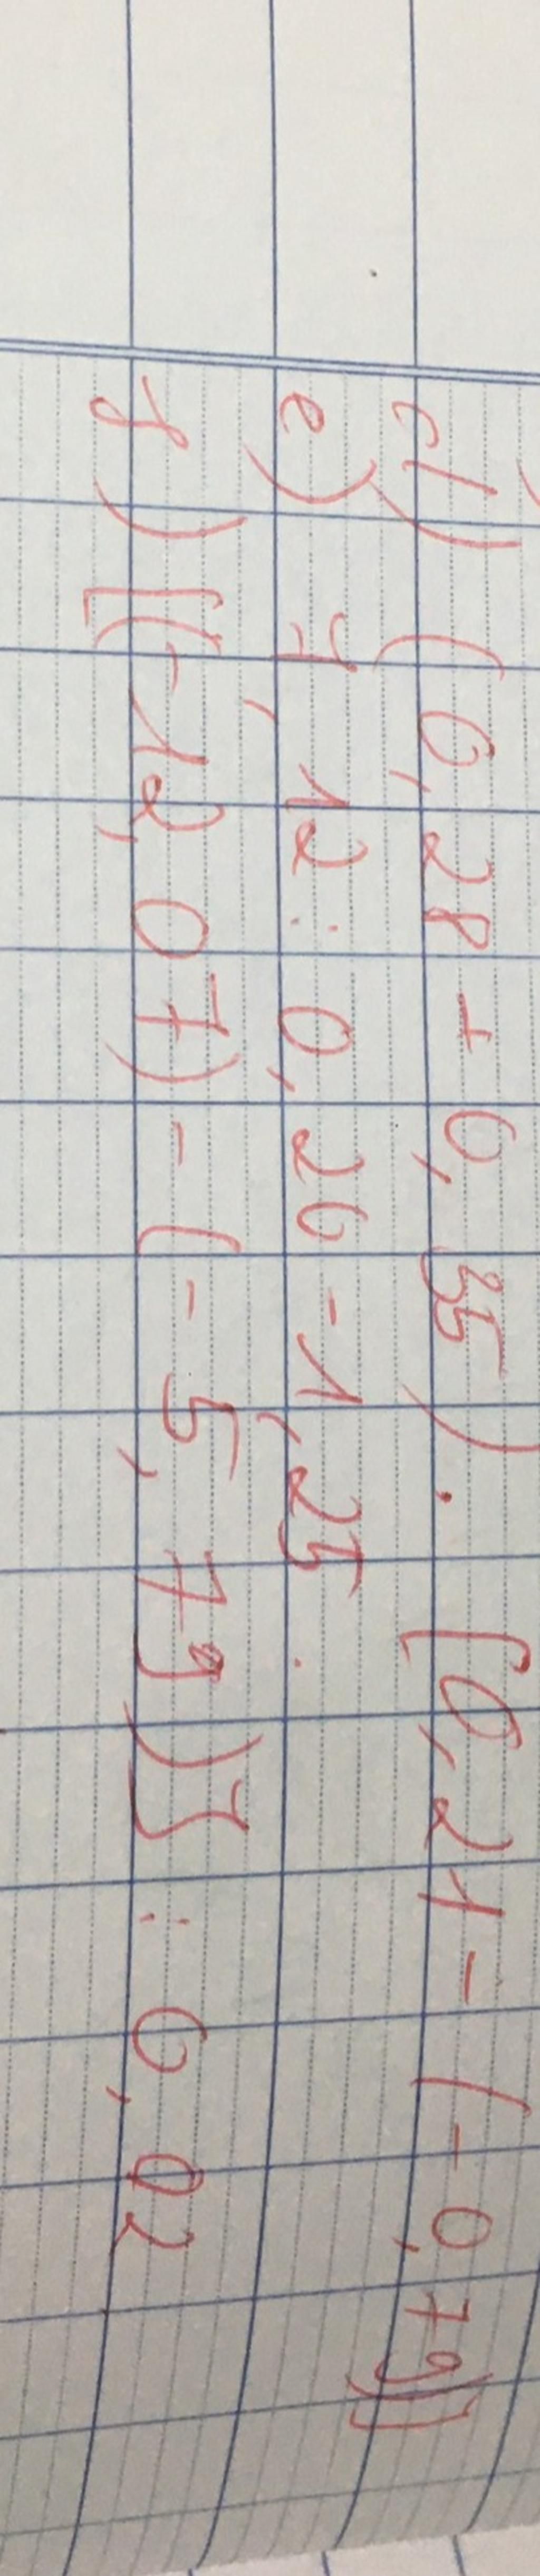 d) (0,28 + 0,35) . [0,21 - (-0,79)]
e) 7,12 : 0,20 - 1,25 .
f) [(-12,07) - (-5,79)] : 0,02